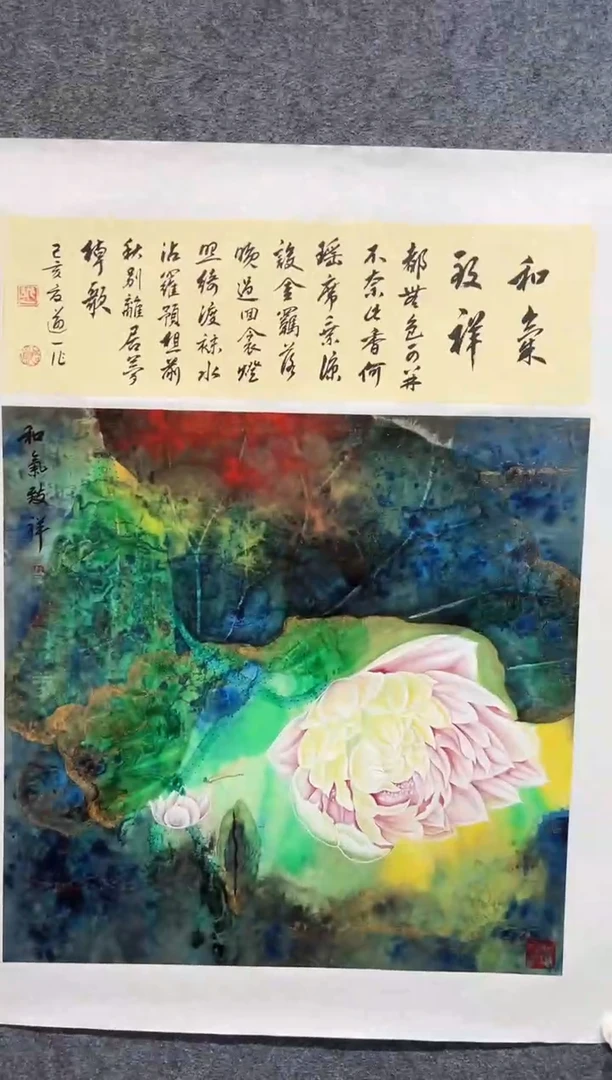 和氣
致祥
都無色可并
不奈此香何
瑶席乘凉
設金羈落
晚過回衾燈
照綺渡袜水
沾羅預想前
秋別離居夢
棹歌
己亥 一作
和氣致祥